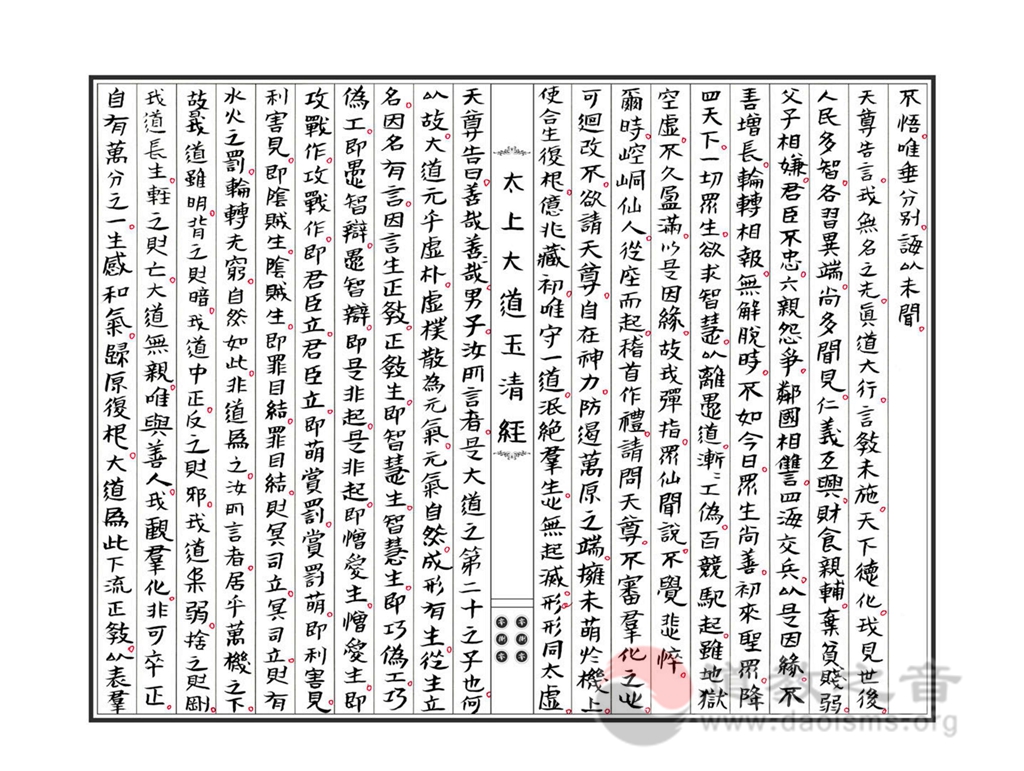 不悟唯垂分别誨以未聞
天尊告言我無名之先真道大行言教未施天下德化我見世後
人民多智各習異端尚多聞見仁義互興財食親輔棄貧賤弱
父子相嫌君臣不忠六親怨爭鄰國相讐四海交兵以是因緣不
善增長輪轉相報無解脫時不如今日眾生尚善初來聖眾降
四天下一切眾生欲求智慧以離愚道漸工偽百競馳起雖地獄
空虛不久盈滿以是因緣故我彈指眾仙聞說不覺悲悴
爾時崆峒仙人從座而起稽首作禮請問天尊不審羣化之
可迴改不欲請天尊自在神力防遏萬原之端擁未萌於機上
使合生復根億兆藏初唯守一道泯絕羣生心無起滅形形同太虛
太上大道玉清經
天尊告曰善哉善哉男子汝所言者是大道之第二十之子也何
以故大道元乎虛朴虛樸散為元氣元氣自然成形有生從生立
名因名有言因言生正教正教生即智慧生智慧生即巧偽工巧
偽工即愚智辯愚智辯即是非起是非起即憎愛生憎愛生即
攻戰作攻戰作即君臣立君臣立即萌賞罰賞罰萌即利害見
利害見即陰賊生陰賊生即罪目結罪目結則冥司立冥司立則有
水火之罰輪轉无窮自然如此非道為之汝所言者居乎萬機之下
故義道雖明背之則暗我道中正反之則邪我道柔弱捨之則剛
我道長生輕之則亡大道無親唯與善人我觀羣化非可卒正
自有萬分之一生感和氣歸原復根大道為此下流正教以表羣
道教之音
www.daoisms.org